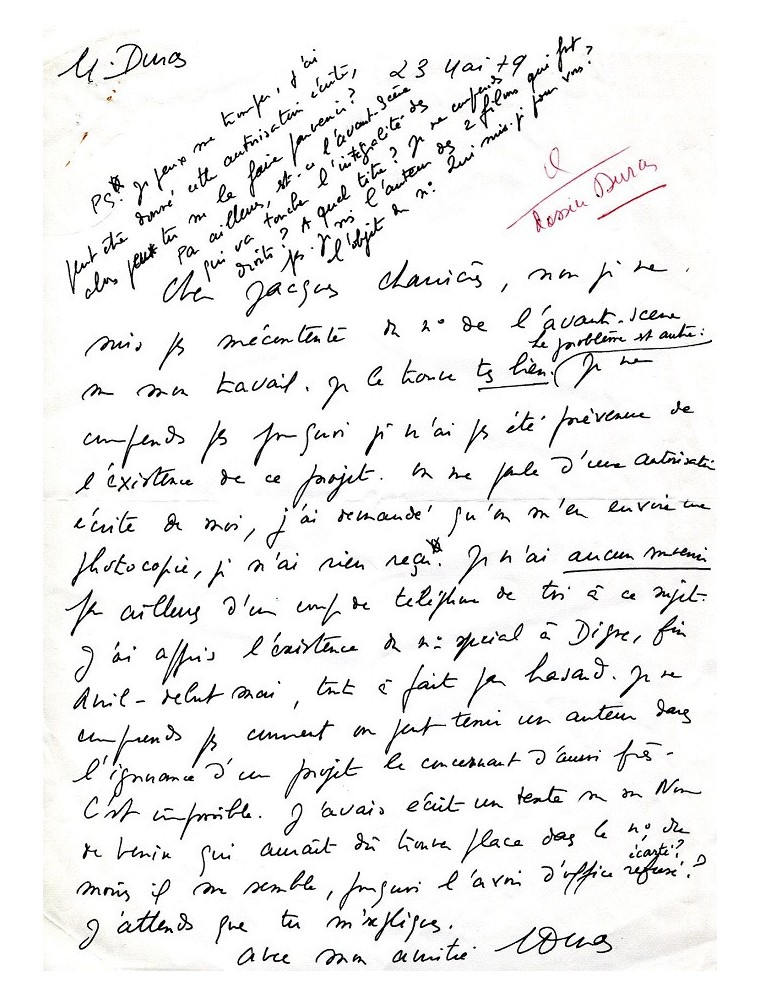 M. Duras
23 Mai 79
PS* : Je peux me tromper, j'ai
peut être donné cette autorisation écrite,
alors peux tu me la faire parvenir?
Par ailleurs, est-ce l'avant-scène
qui va toucher l'intégralité des
droits? A quel titre? Je ne comprends
pas. Je suis l'auteur des 2 films qui font
l'objet du n°. Qui suis-je pour vous?
Dossier Duras
Cher Jacques Charrière, non je ne
suis pas mécontente du n° de l'avant-scène
Le problème est autre :
sur mon travail. Je le trouve très bien. Je ne
comprends pas pourquoi je n'ai pas été prévenue de
l'éxistence de ce projet. On me parle d'une autorisation
écrite de moi, j'ai demandé qu'on m'en envoie une
photocopie, je n'ai rien reçu*. Je n'ai aucun souvenir
par ailleurs d'un coup de téléphone de toi à ce sujet.
J'ai appris l'éxistence du n° spécial à Digne, fin
Avril - début mai, tout à fait par hasard. Je ne
comprends pas comment on peut tenir un auteur dans
l'ignorance d'un projet le concernant d'aussi près -
C'est impossible. J'avais écrit un texte sur Son Nom
de Venise qui aurait dû trouver place dans le n° du
écarté?
moins il me semble, pourquoi l'avoir d'office refusé?
J'attends que tu m'expliques.
avec mon amitié MDuras